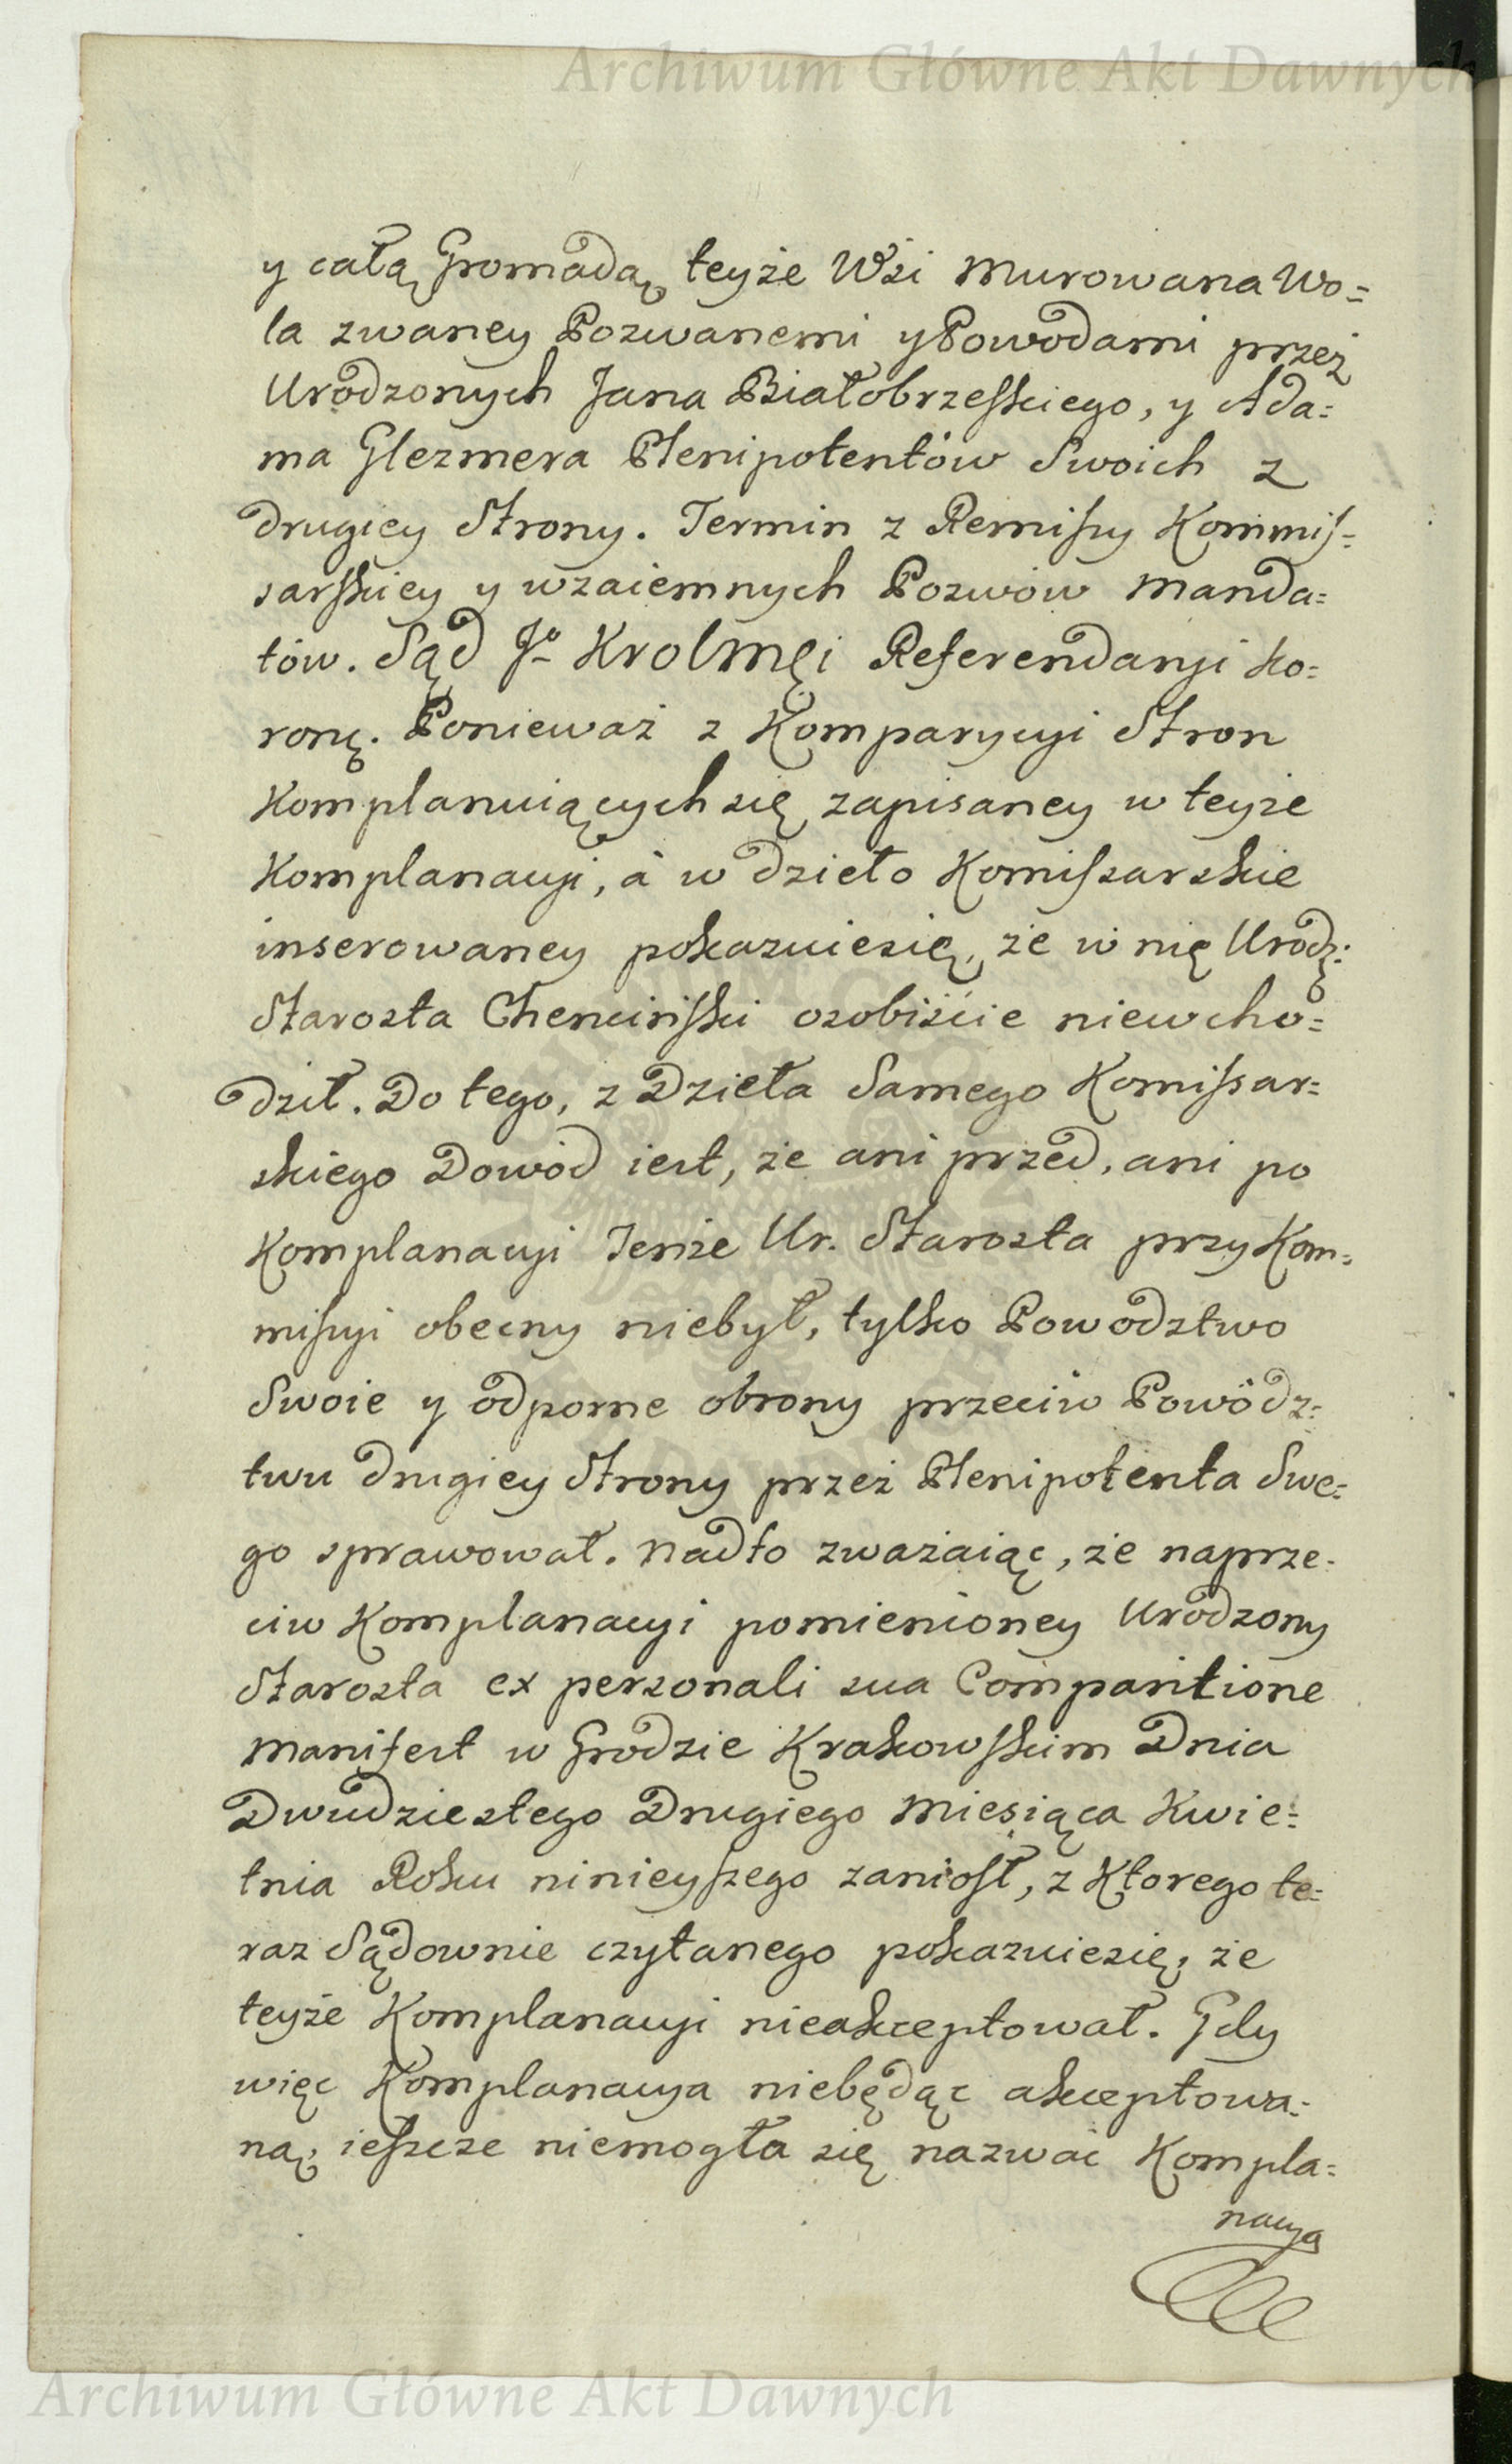 Archiwum Główne Akt Dawnych
y całą Gromadą teyże Wsi Murowana Wo=
la zwaney Pozwanemi y Powodami przez
Urodzonych Jana Białobrzeskiego, y Ada=
ma Glezmera Plenipotentów Swoich z
drugiey Strony. Termin z Remissy Kommis=
sarskiey y wzaiemnych Pozwów Manda=
tów. Sąd Jº KrolMęi Referendaryi Ko=
ronę. Ponieważ z Komparycyi Stron
Komplanuiących się zapisaney w teyże
Komplanacyi, à w dzieło Komissarskie
inserowaney pokazuiesię, że w nię Urodz:
Starosta Chenciński osobiście niewcho=
dził. Do tego, z Dzieła Samego Komissar=
skiego Dowód iest, że ani przed, ani po
Komplanacyi Tenże Ur. Starosta przy Kom=
missyi obecny niebył, tylko Powodztwo
Swoie y odporne obrony przeciw Powódz=
twu drugiey Strony przez Plenipotenta Swe=
go sprawował. Nadto zważaiąc, że naprze=
ciw Komplanacyi pomienioney Urodzony
Starosta ex personali sua Comparitione
Manifest w Grodzie Krakowskim Dnia
Dwudziestego Drugiego Miesiąca Kwie=
tnia Roku ninieyszego zaniosł, z Ktorego te=
raz Sądownie czytanego pokazuiesię, że
teyże Komplanacyi nieakceptował. Gdy
więc Komplanacya niebędąc akceptowa=
ną, ieszcze niemogła się nazwać Kompla=
nacya
Archiwum Główne Akt Dawnych